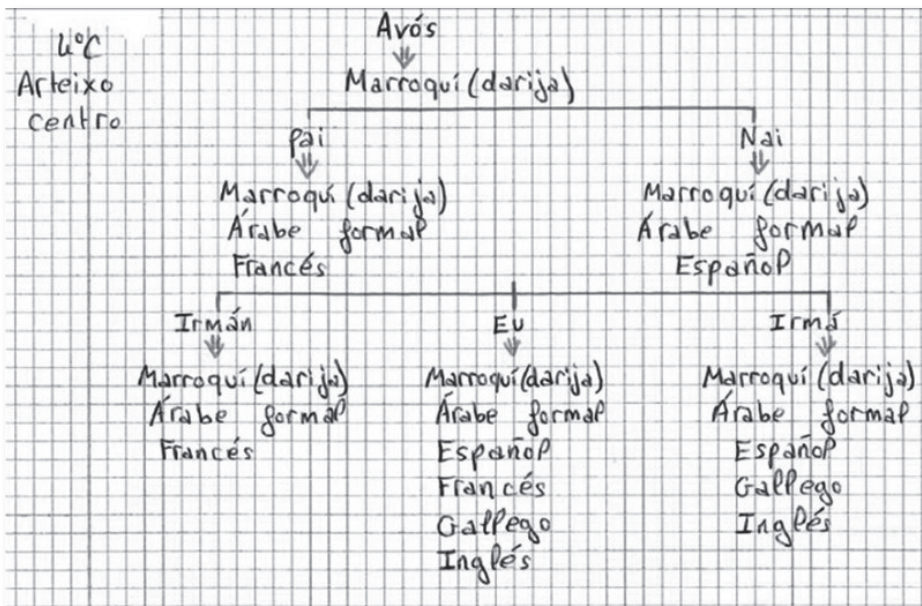 4ºC
Arteixo
centro
Avós
Marroquí (darija)
Pai
Marroquí (darija)
Árabe formal
Francés
Nai
Marroquí (darija)
Árabe formal
Español
Irmán
Marroquí (darija)
Árabe formal
Francés
Eu
Marroquí (darija)
Árabe formal
Español
Francés
Gallego
Inglés
Irmá
Marroquí (darija)
Árabe formal
Español
Gallego
Inglés